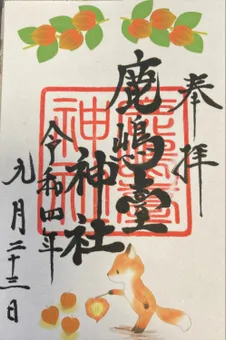 奉拝
鹿嶋臺神社
令和四年
九月二十三日